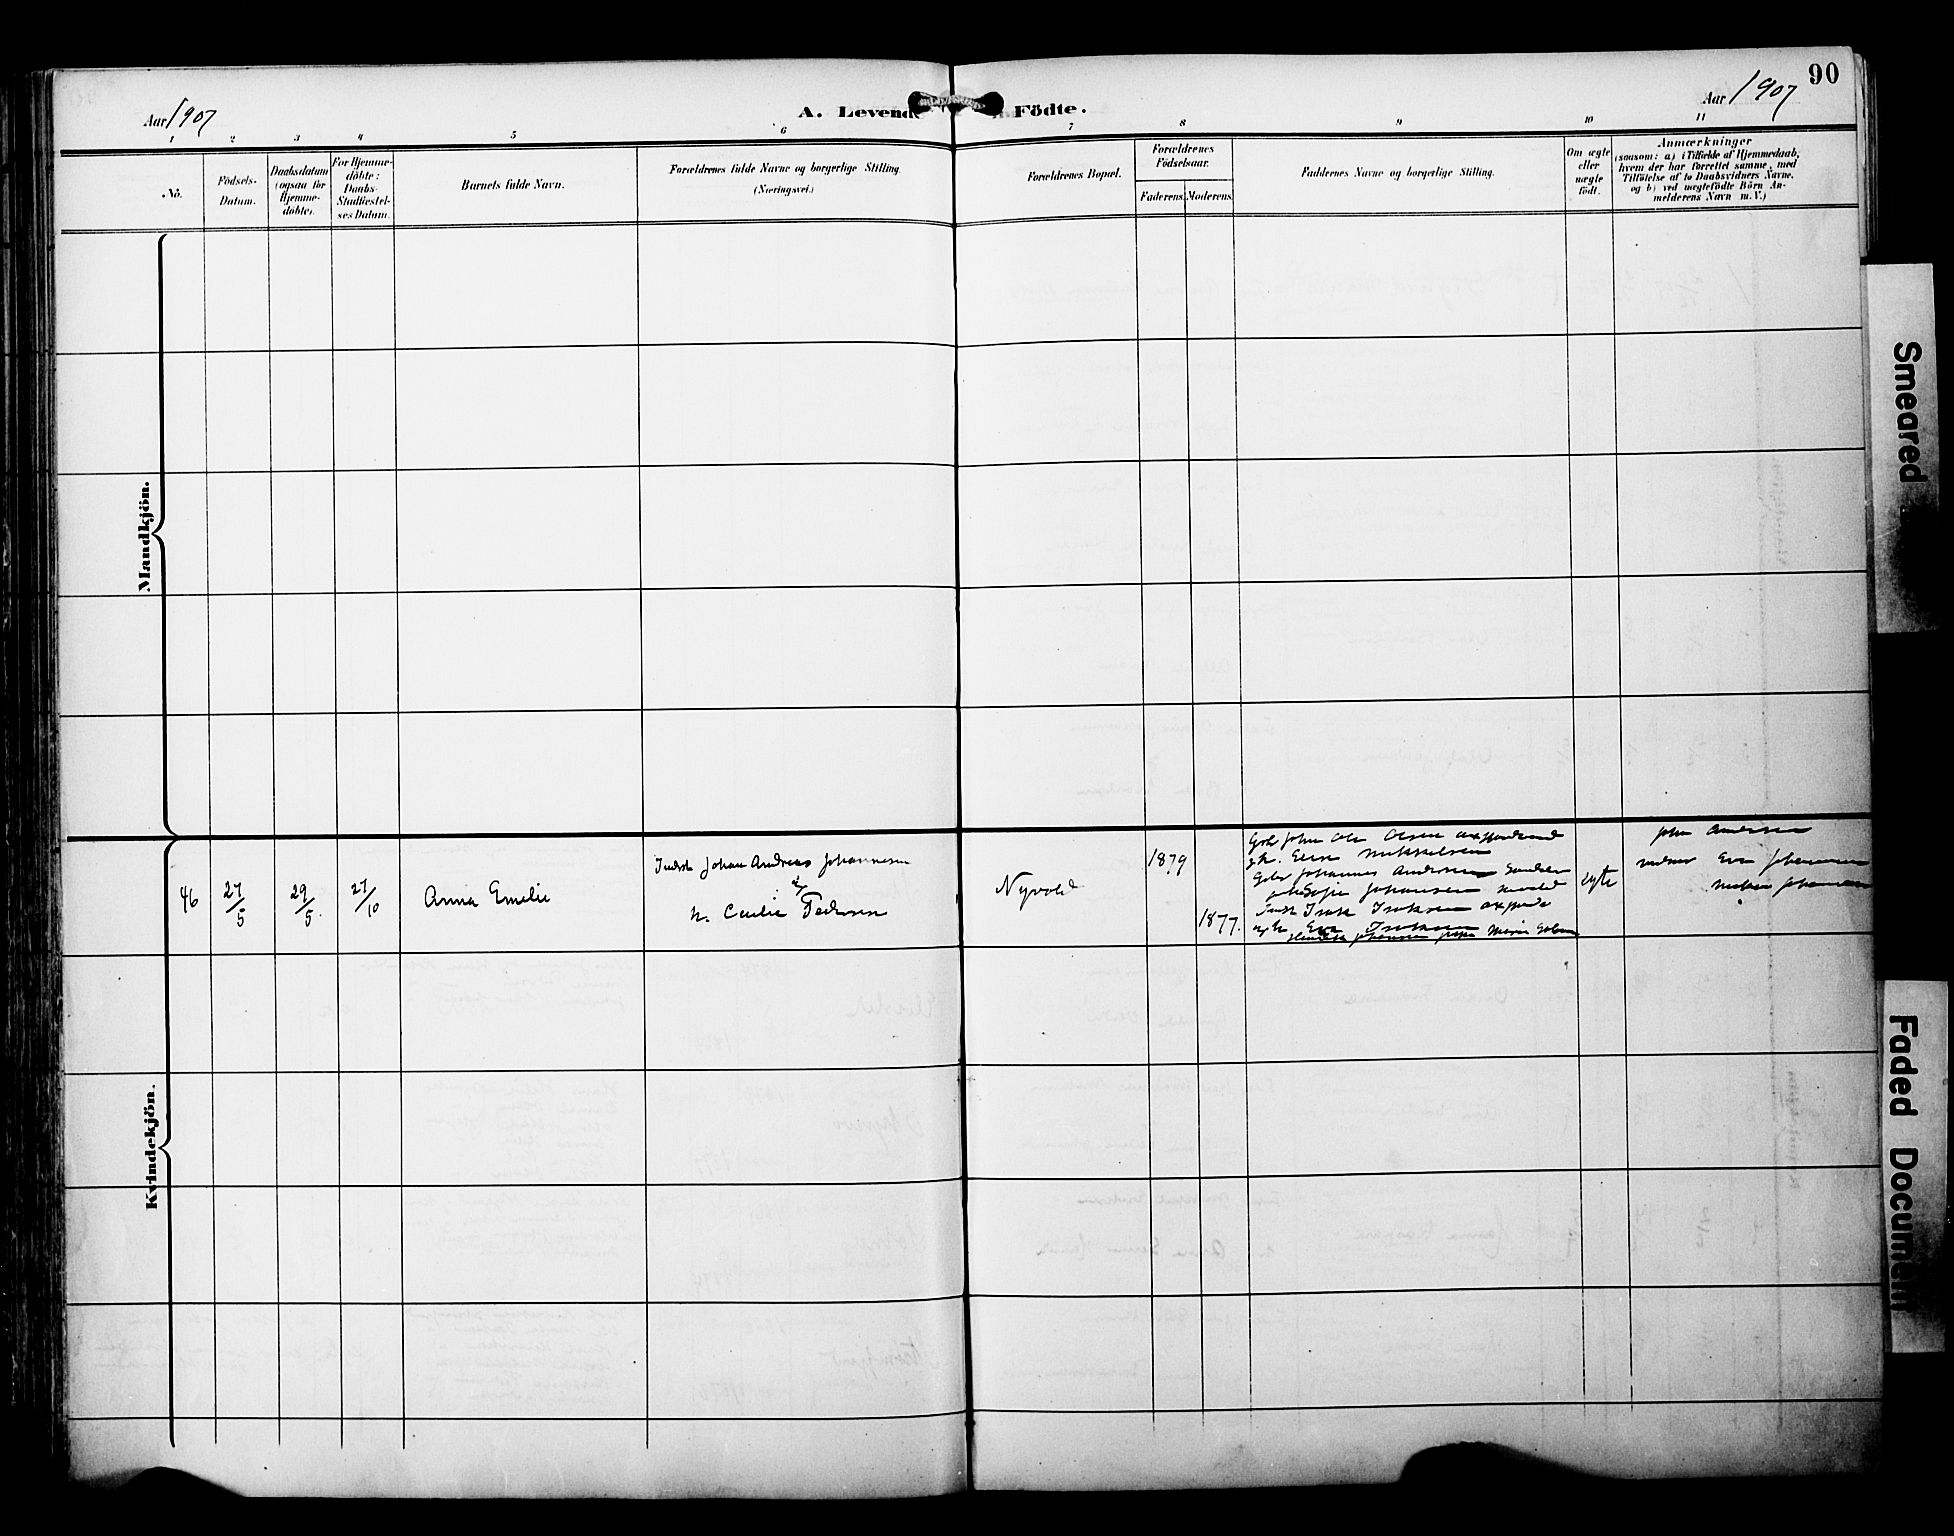 90
Aar 1907
A. Levende Födte.
Aar 1907
1 2 3 4 5 6 7 8 9 10 11
No.
Födsels-
Datum.
Daabsdatum
(ogsaa for
Hjemme-
döbte).
For Hjemme-
döbte:
Daabs-
Stadfæstel-
ses Datum.
Barnets fulde Navn.
Forældrenes fulde Navne og borgerlige Stilling.
(Næringsvei.)
Forældrenes Bopæl.
Forældrenes
Födselsaar.
Faderens.
Moderens.
Faddernes Navne og borgerlige Stilling.
Om ægte
eller
uægte
født.
Anmærkninger
(saasom: a) i Tilfælde af Hjemmedaab,
hvem der har forrettet samme, med
Tilföielse af to Daabsvidners Navne,
og b) ved uægtefödte Börn An-
melderens Navn m. V.)
Mandkjön.
Kvindekjön.
46
27/5
29/5
27/10
Anna Emelie
Johan Andreas Johannesen
Pedersen
Nyvold
1879
1877.
John Ole Olsen
Mikkelsen
Johannes Andersen
Sofie Johansen
Isak Isaksen
Eva Isaksen
Johansen
ægte
John Andersen
Eva Johannesen
Smeared
Faded Document